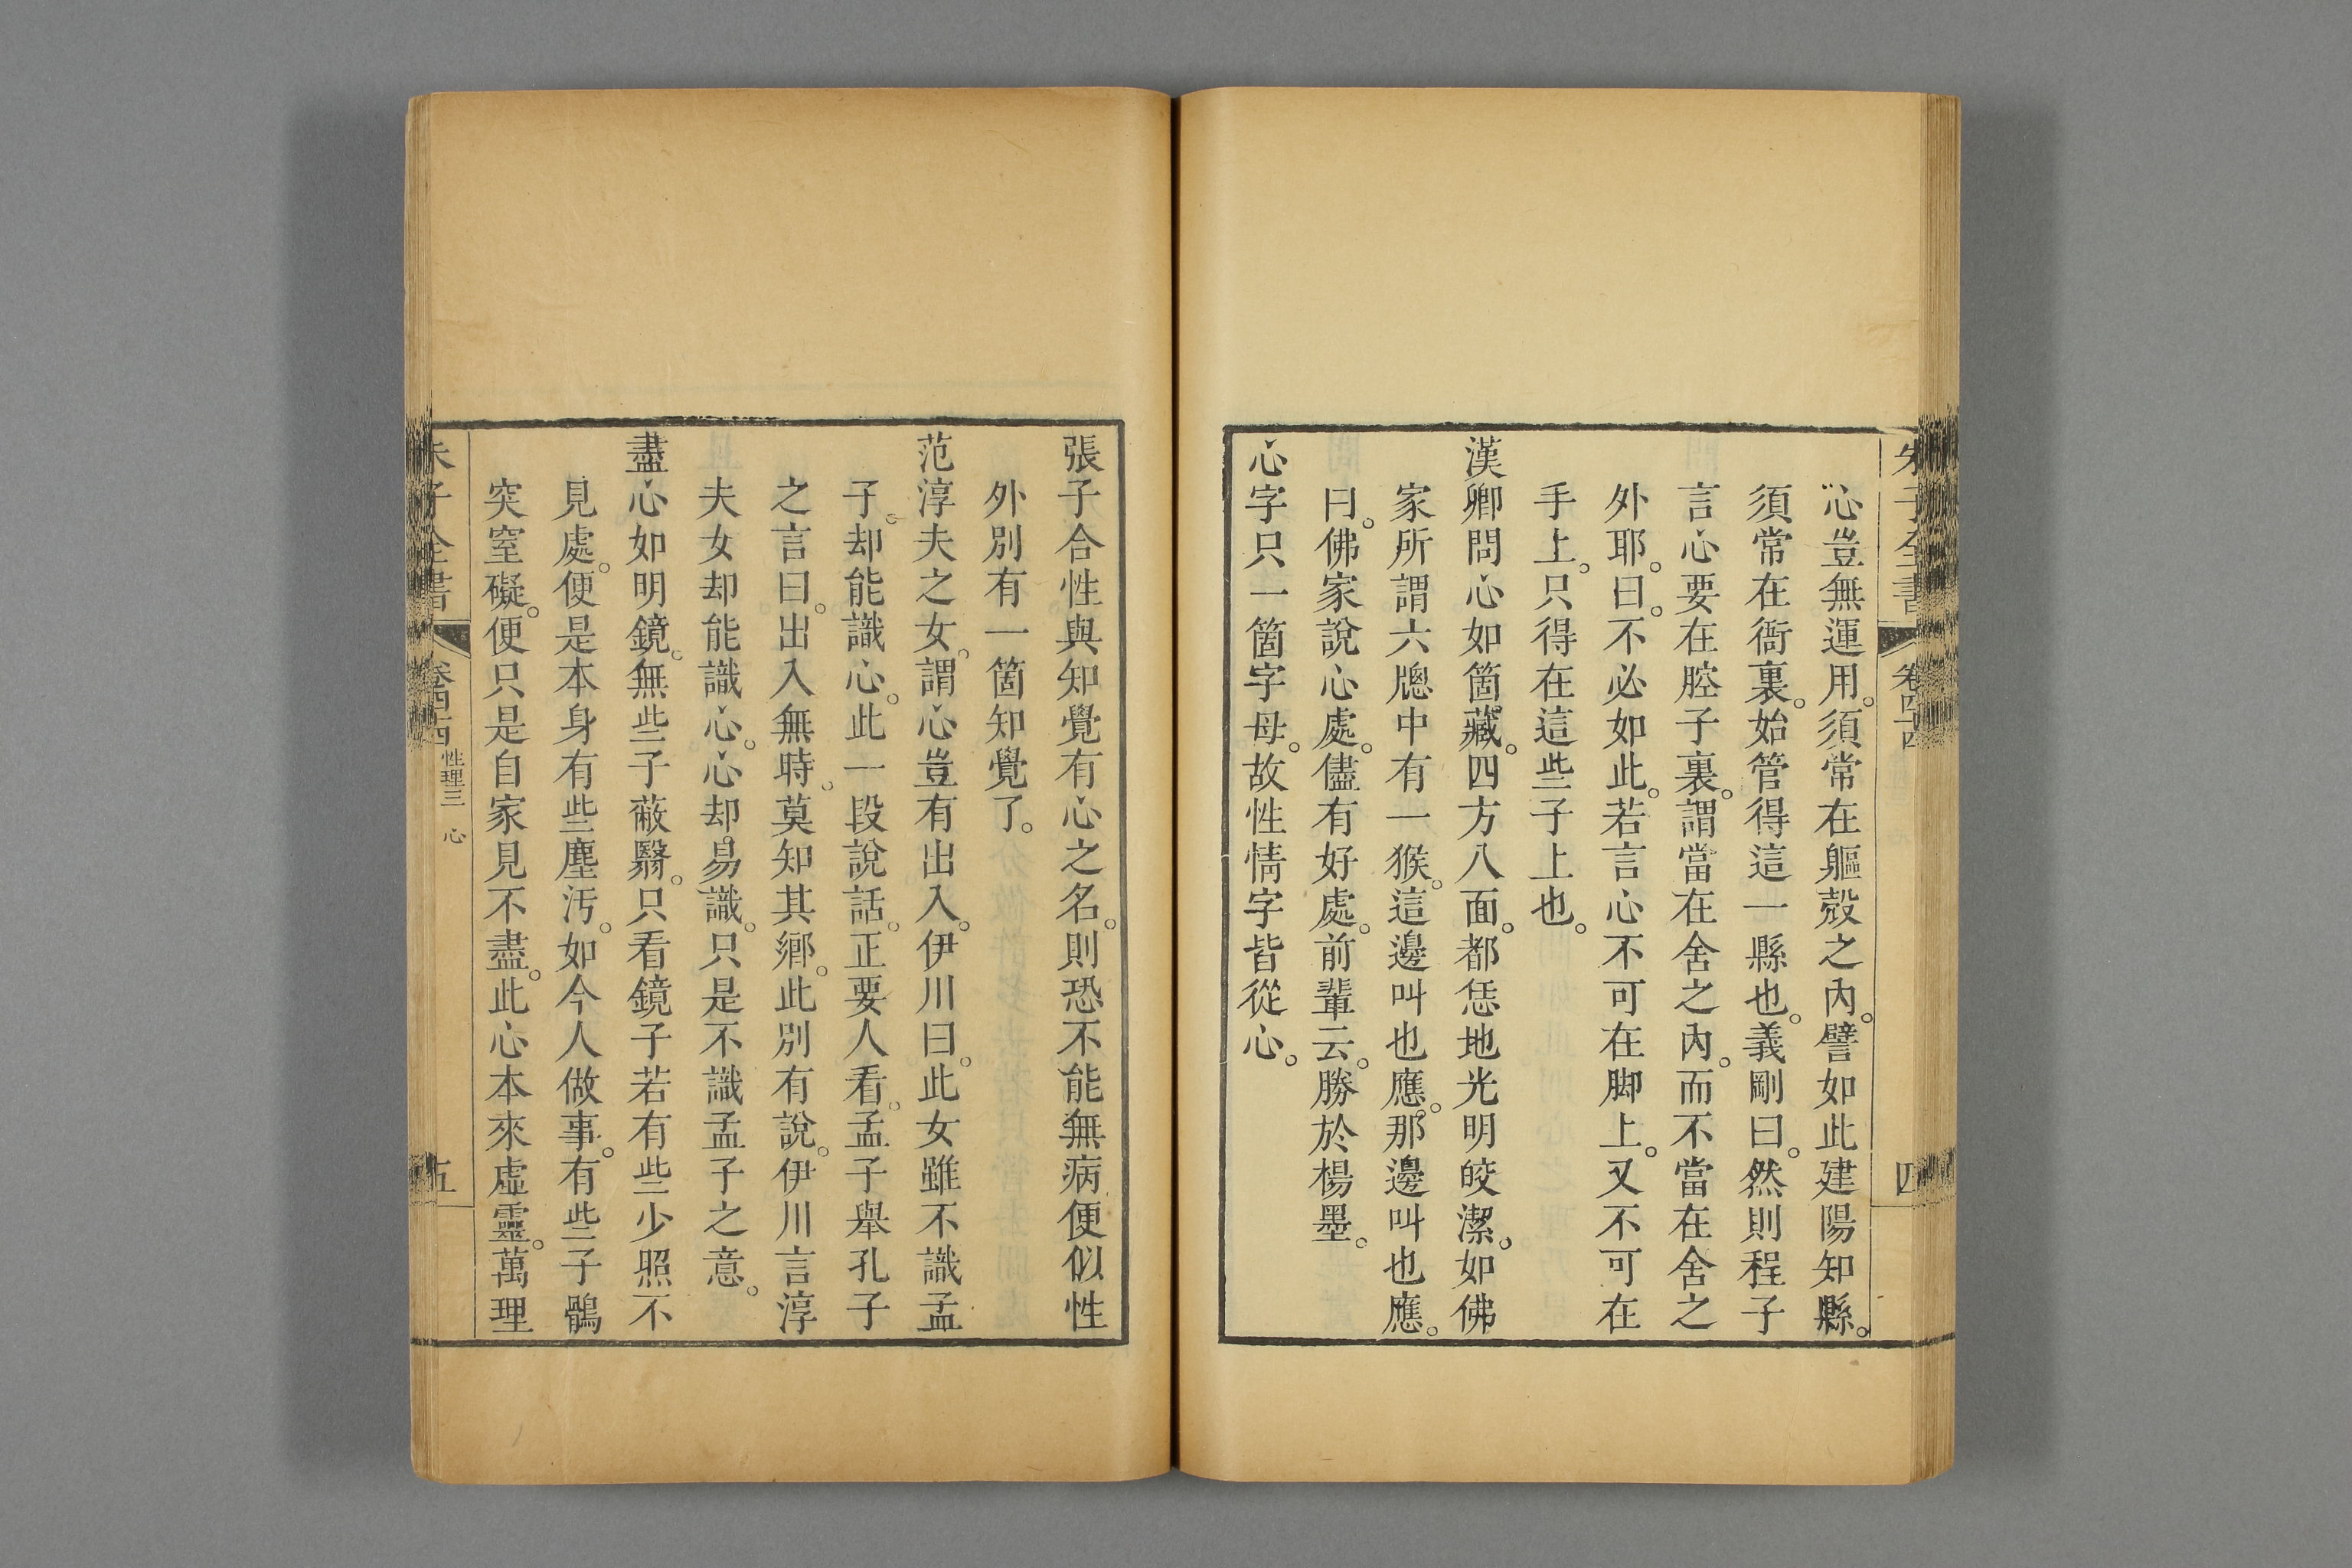 朱子全書 卷四十四 四
心豈無運用。須常在軀殼之內。譬如此建陽知縣。
須常在衙裏。始管得這一縣也。義剛曰。然則程子
言心要在腔子裏。謂當在舍之內。而不當在舍之
外耶。曰。不必如此。若言心不可在脚上。又不可在
手上。只得在這些子上也。
漢卿問心如箇藏。四方八面。都恁地光明皎潔。如佛
家所謂六牕中有一猴。這邊叫也應。那邊叫也應。
曰。佛家說心處。儘有好處。前輩云。勝於楊墨。
心字只一箇字母。故性情字皆從心。
張子合性與知覺有心之名。則恐不能無病便似性
外別有一箇知覺了。
范淳夫之女。謂心豈有出入。伊川曰。此女雖不識孟
子。却能識心。此一段說話。正要人看。孟子舉孔子
之言曰。出入無時。莫知其鄉。此別有說。伊川言淳
夫女却能識心。心却易識。只是不識孟子之意。
盡心如明鏡。無些子蔽翳。只看鏡子若有些少照不
見處。便是本身有些塵汚。如今人做事。有些子鶻
突窒礙。便只是自家見不盡。此心本來虛靈。萬理
朱子全書 卷四十四 性理三 心 五